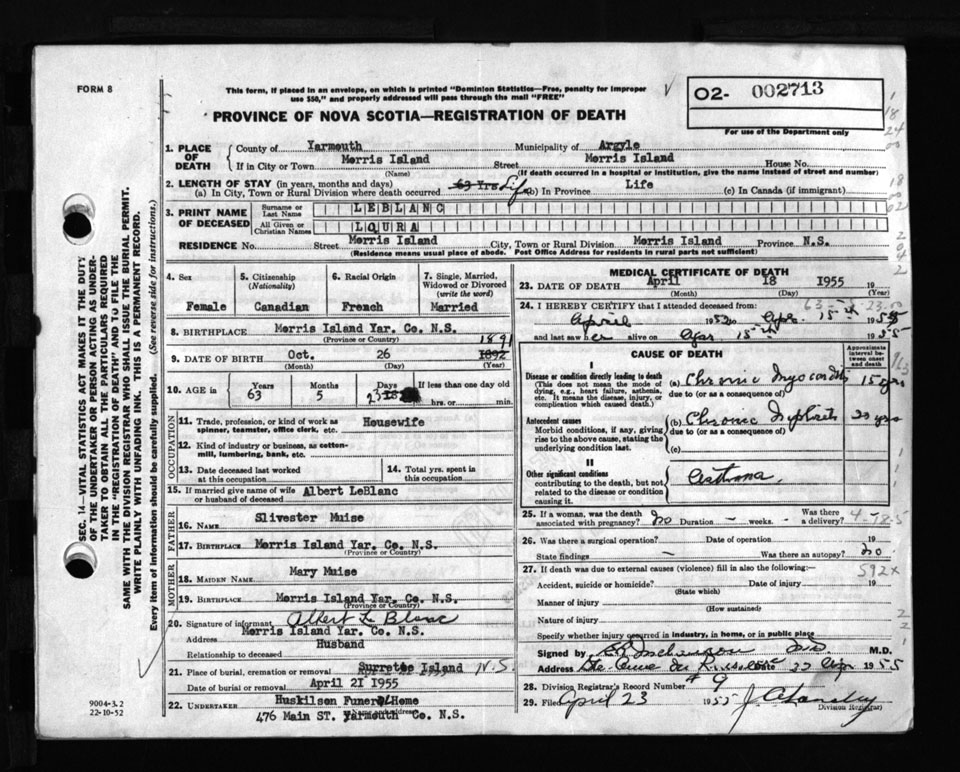 FORM 8
This form, if placed in an envelope, on which is printed "Dominion Statistics—Free, penalty for improper
use $50," and properly addressed will pass through the mail "FREE"
O2- 002713
For use of the Department only
PROVINCE OF NOVA SCOTIA—REGISTRATION OF DEATH
SEC. 14—VITAL STATISTICS ACT MAKES IT THE DUTY
OF THE UNDERTAKER OR PERSON ACTING AS UNDER-
TAKER TO OBTAIN ALL THE PARTICULARS REQUIRED
IN THE "REGISTRATION OF DEATH" AND TO FILE THE
SAME WITH THE DIVISION REGISTRAR WHO SHALL ISSUE THE BURIAL PERMIT.
WRITE PLAINLY WITH UNFADING INK. THIS IS A PERMANENT RECORD.
Every item of information should be carefully supplied. (See reverse side for instructions.)
1. PLACE OF DEATH
County of Yarmouth Municipality of Argyle
If in City or Town Morris Island Street Morris Island House No.
(Name) (If death occurred in a hospital or institution, give the name instead of street and number)
2. LENGTH OF STAY (in years, months and days)
(a) In City, Town or Rural Division where death occurred 63 Yrs Life (b) In Province Life (c) In Canada (if immigrant)
3. PRINT NAME OF DECEASED
Surname or Last Name LEBLANC
All Given or Christian Names LOURA
RESIDENCE No. Street Morris Island City, Town or Rural Division Morris Island Province N.S.
(Residence means usual place of abode. Post Office Address for residents in rural parts not sufficient)
4. Sex
Female
5. Citizenship (Nationality)
Canadian
6. Racial Origin
French
7. Single, Married, Widowed or Divorced (write the word)
Married
8. BIRTHPLACE Morris Island Yar. Co. N.S.
(Province or Country)
1891
9. DATE OF BIRTH Oct. 26 1892
(Month) (Day) (Year)
10. AGE in Years Months Days If less than one day old
63 5 23 hrs. or min.
OCCUPATION
11. Trade, profession, or kind of work as Housewife
spinner, teamster, office clerk, etc.
12. Kind of industry or business, as cotton-
mill, lumbering, bank, etc.
13. Date deceased last worked at this occupation
14. Total yrs. spent in this occupation
15. If married give name of wife or husband of deceased Albert LeBlanc
FATHER
16. NAME Slivester Muise
17. BIRTHPLACE Morris Island Yar. Co. N.S.
(Province or Country)
MOTHER
18. MAIDEN NAME Mary Muise
19. BIRTHPLACE Morris Island Yar. Co. N.S.
(Province or Country)
20. Signature of informant Albert Le Blanc
Address Morris Island Yar. Co. N.S.
Relationship to deceased Husband
21. Place of burial, cremation or removal Surrette Island N.S.
Date of burial or removal April 21 1955
22. UNDERTAKER Huskilson Funeral Home
476 Main ST. Yarmouth Co. N.S.
9004-3.2
22-10-52
MEDICAL CERTIFICATE OF DEATH
23. DATE OF DEATH April 18 1955
(Month) (Day) (Year)
24. I HEREBY CERTIFY that I attended deceased from:
April 1952 to Apr. 15th 1955
and last saw her alive on Apr 15th 1955
CAUSE OF DEATH
Approximate interval between onset and death
I
Disease or condition directly leading to death
(This does not mean the mode of dying, e.g., heart failure, asthenia, etc. It means the disease, injury, or complication which caused death.)
(a) Chronic Myocarditis 15 yrs
due to (or as a consequence of)
Antecedent causes
Morbid conditions, if any, giving rise to the above cause, stating the underlying condition last.
(b) Chronic Nephritis 20 yrs
due to (or as a consequence of)
(c)
II
Other significant conditions
contributing to the death, but not related to the disease or condition causing it.
Asthma.
25. If a woman, was the death associated with pregnancy? No Duration – weeks. – Was there a delivery?
26. Was there a surgical operation? Date of operation 19
State findings – Was there an autopsy? no
27. If death was due to external causes (violence) fill in also the following:—
592x
Accident, suicide or homicide? Date of injury 19
(State which)
Manner of injury
(How sustained)
Nature of injury
Specify whether injury occurred in industry, in home, or in public place
Signed by M.D.
Address Ste Anne du Ruisseau Date 22 Apr 1955
28. Division Registrar's Record Number # 9
29. Filed April 23 1955
Division Registrar